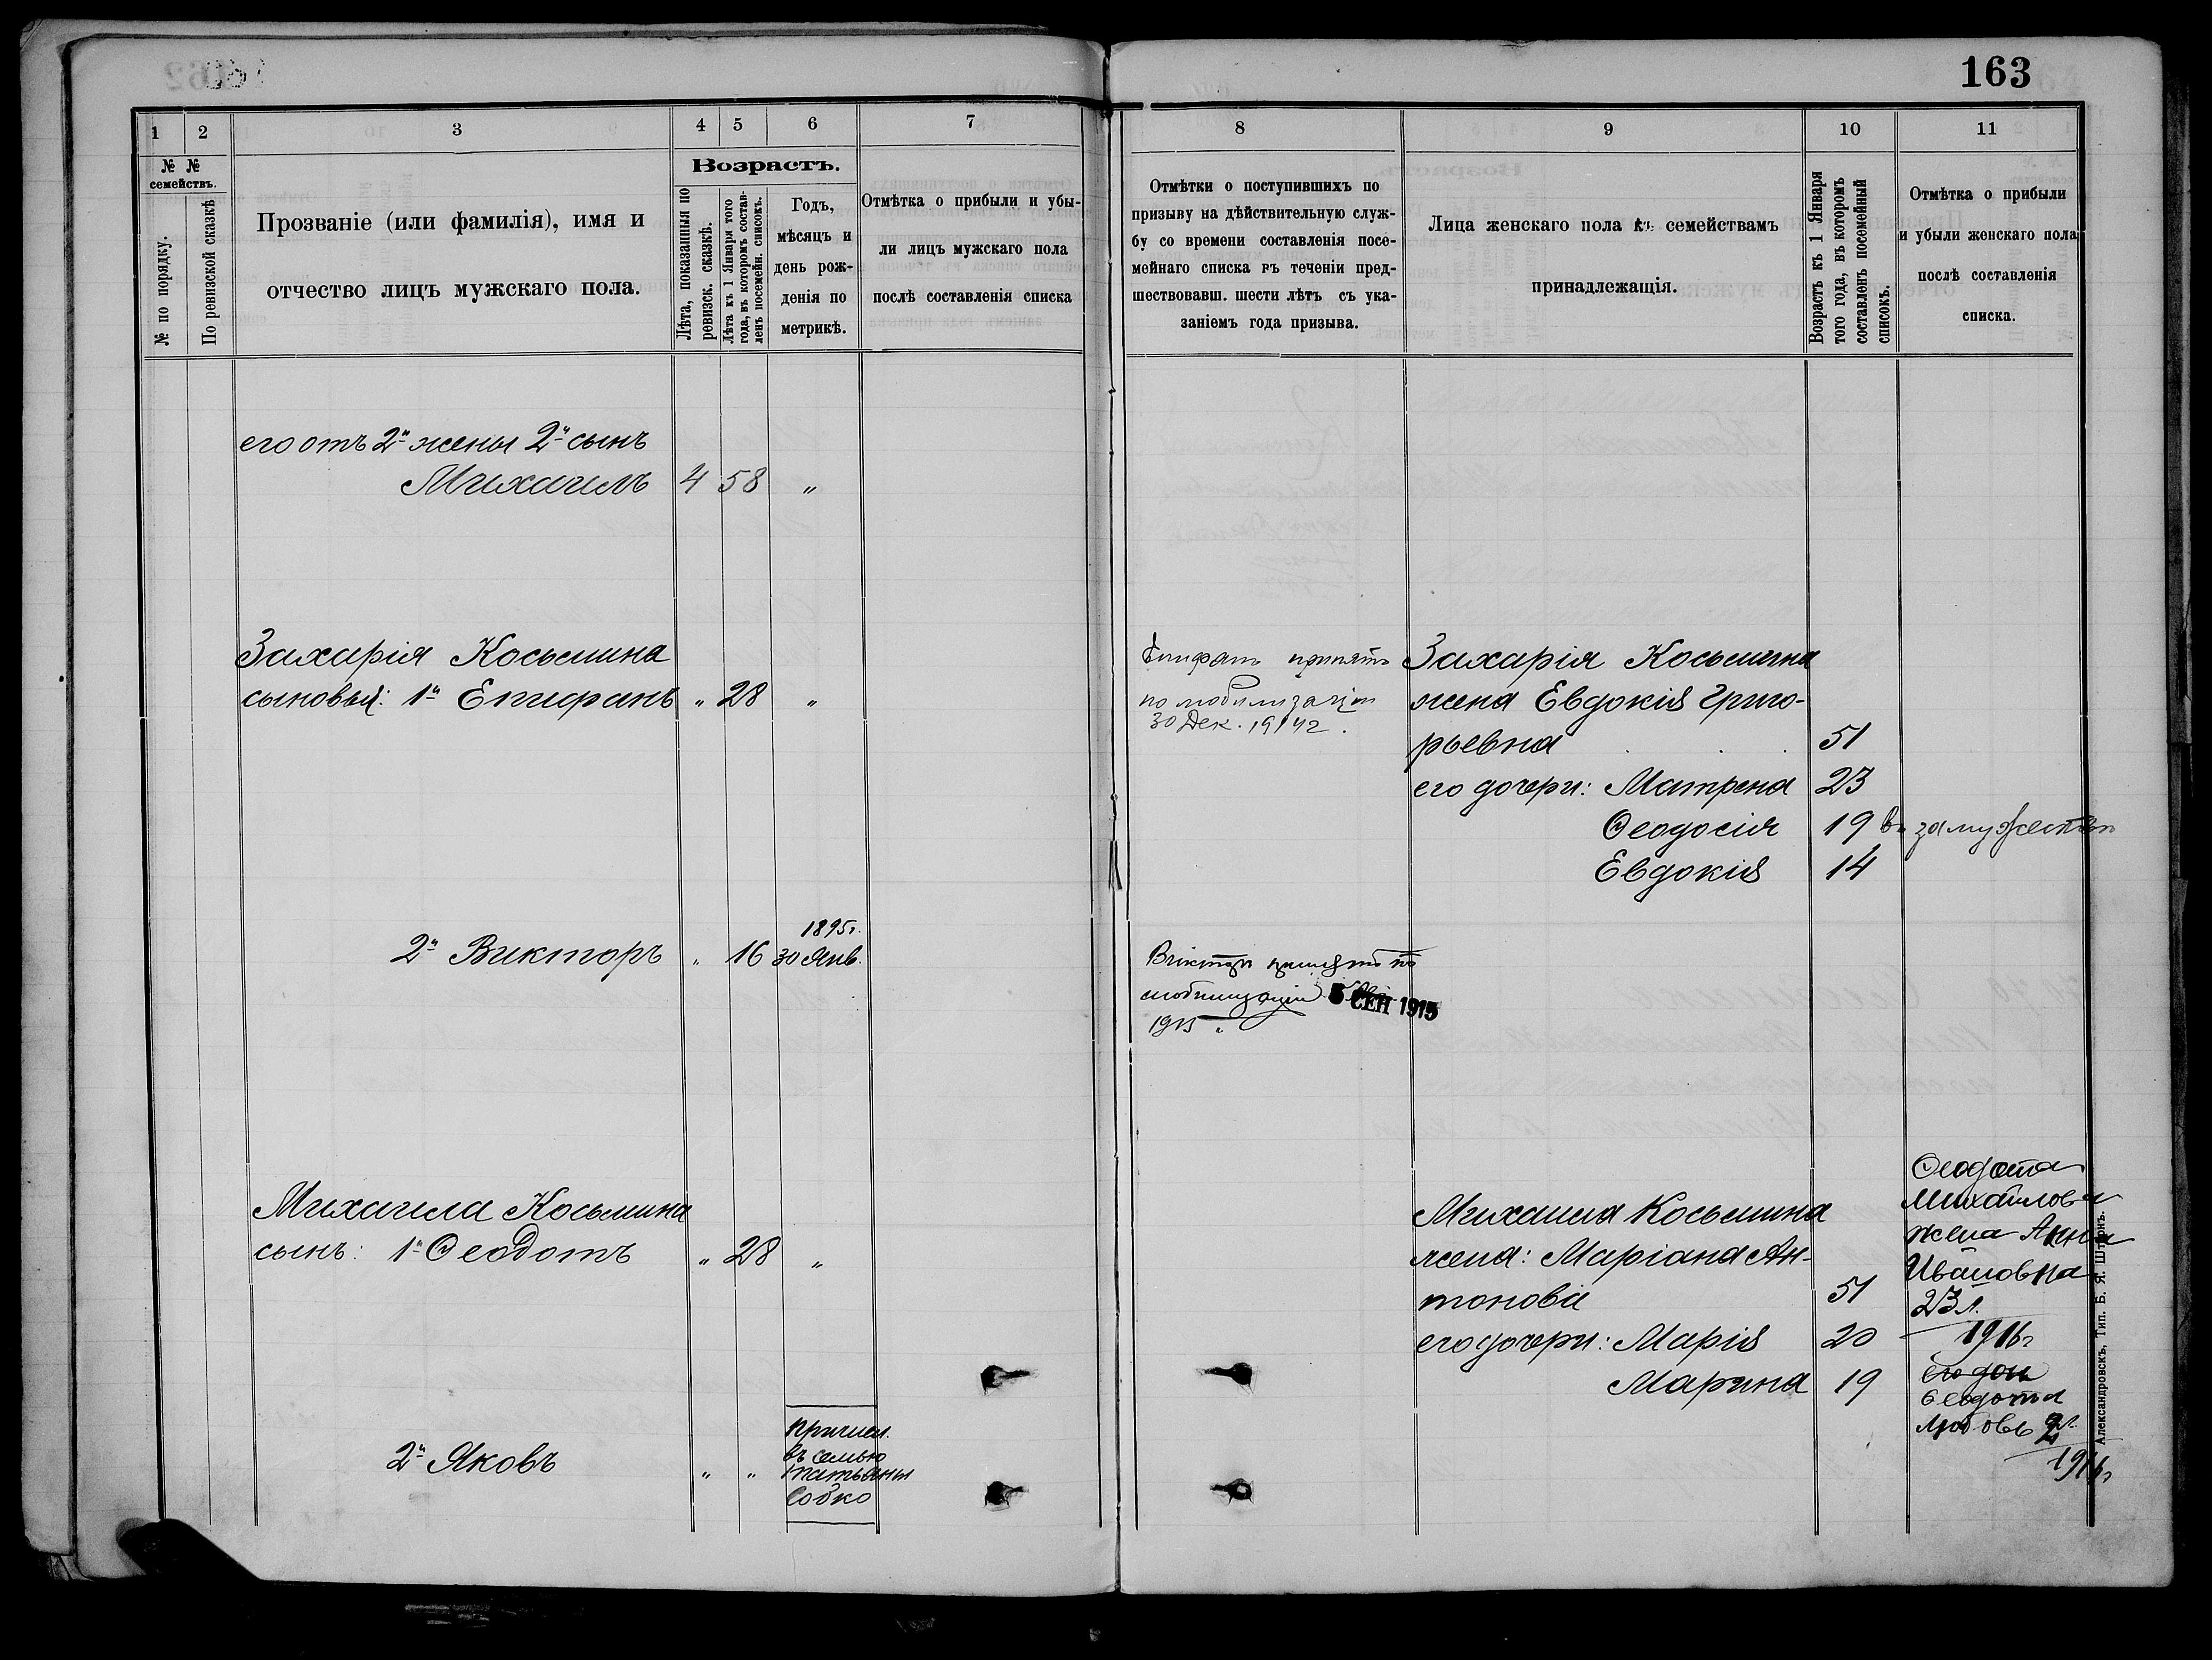 163
1
2
3
4
5
6
7
№ №
семействъ.
№ по порядку.
По ревизской сказкѣ
Прозваніе (или фамилія), имя и
отчество лицъ мужскаго пола.
Возрастъ.
Лѣта, показанныя по
ревизск. сказкѣ.
Лѣта къ 1 Января того
года, въ которомъ состав-
ленъ посемейн. списокъ.
Годъ,
мѣсяцъ и
день рож-
денія по
метрикѣ.
Отмѣтка о прибыли и убы-
ли лицъ мужскаго пола
послѣ составленія списка
его отъ 2й жены 2й сынъ
Михаилъ 4 58 "
Захарія Косьмина
сыновья: 1й Епифанъ " 28 "
1895г.
2й Викторъ " 16 30 Янв.
Михаила Косьмина
сынъ: 1й Ѳеодотъ " 28 "
2й Яковъ " "
причисл.
въ семью
Татьяны
Собко
8
9
10
11
Отмѣтки о поступившихъ по
призыву на дѣйствительную служ-
бу со времени составленія посе-
мейнаго списка въ теченіи пред-
шествовавш. шести лѣтъ съ ука-
заніемъ года призыва.
Лица женскаго пола къ семействамъ
принадлежащія.
Возрастъ къ 1 Января
того года, въ которомъ
составленъ посемейный
списокъ.
Отмѣтка о прибыли
и убыли женскаго пола
послѣ составленія
списка.
Епифанъ принятъ
по мобилизаціи
30 Дек. 1914г.
Захарія Косьмина
жена Евдокія Григо-
рьевна 51
его дочери: Матрена 23
Ѳеодосія 19 въ замужествѣ
Евдокія 14
Викторъ принятъ по
мобилизаціи 5 СЕН 1915
1915
Михаила Косьмина
жена: Маріана Ан-
тонова 51
его дочери: Марія 20
Марина 19
Ѳеодота
Михайлова
жена Анна
Ивановна
23 л.
1916г
его доч
Ѳеодота
Любовь 2 л.
1916г
Александровскъ, Тип. Б. Я. Штернъ.